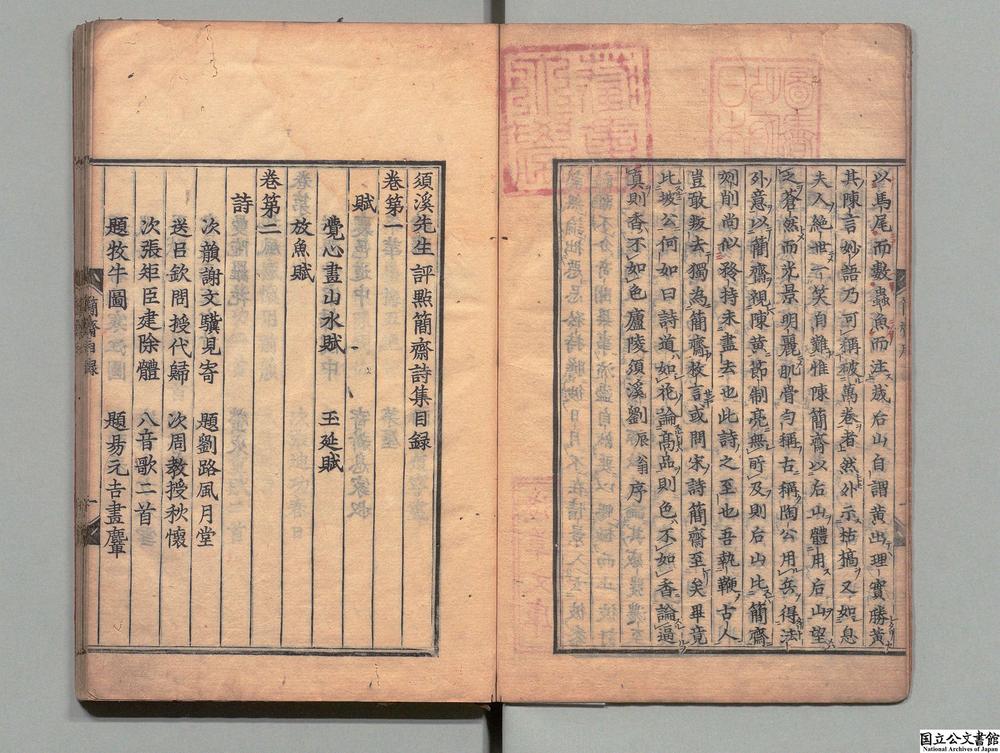 以馬尾而數蟲魚而注歲后山自謂黃出理實勝黃
其陳言妙語乃可稱破萬卷者然外示枯槁又如息
夫人絕世一笑自難惟陳簡齋以后山體用后山望
之蒼然而光景明麗肌骨勻稱古稱陶公用兵得法
外意以簡齋視陳黃節制亮無所及則后山比簡齋
刻削尚似矜持未盡去也此詩之至也吾執鞭古人
豈敢叛去獨為簡齋放言或問宋詩簡齋至矣畢竟
比坡公何如曰詩道如花論髙品則色不如香論逼
真則香不如色廬陵須溪劉辰翁序
須溪先生評點簡齋詩集目録
卷第一
賦
覺心畫山水賦 玉延賦
放魚賦
卷第二
詩
次韻謝文驥見寄 題劉路風月堂
送呂欽問授代歸 次周教授秋懷
次張矩臣建除體 八音歌二首
題牧牛圖 題易元吉畫麞
簡齋目録
一
国立公文書館
National Archives of Japan